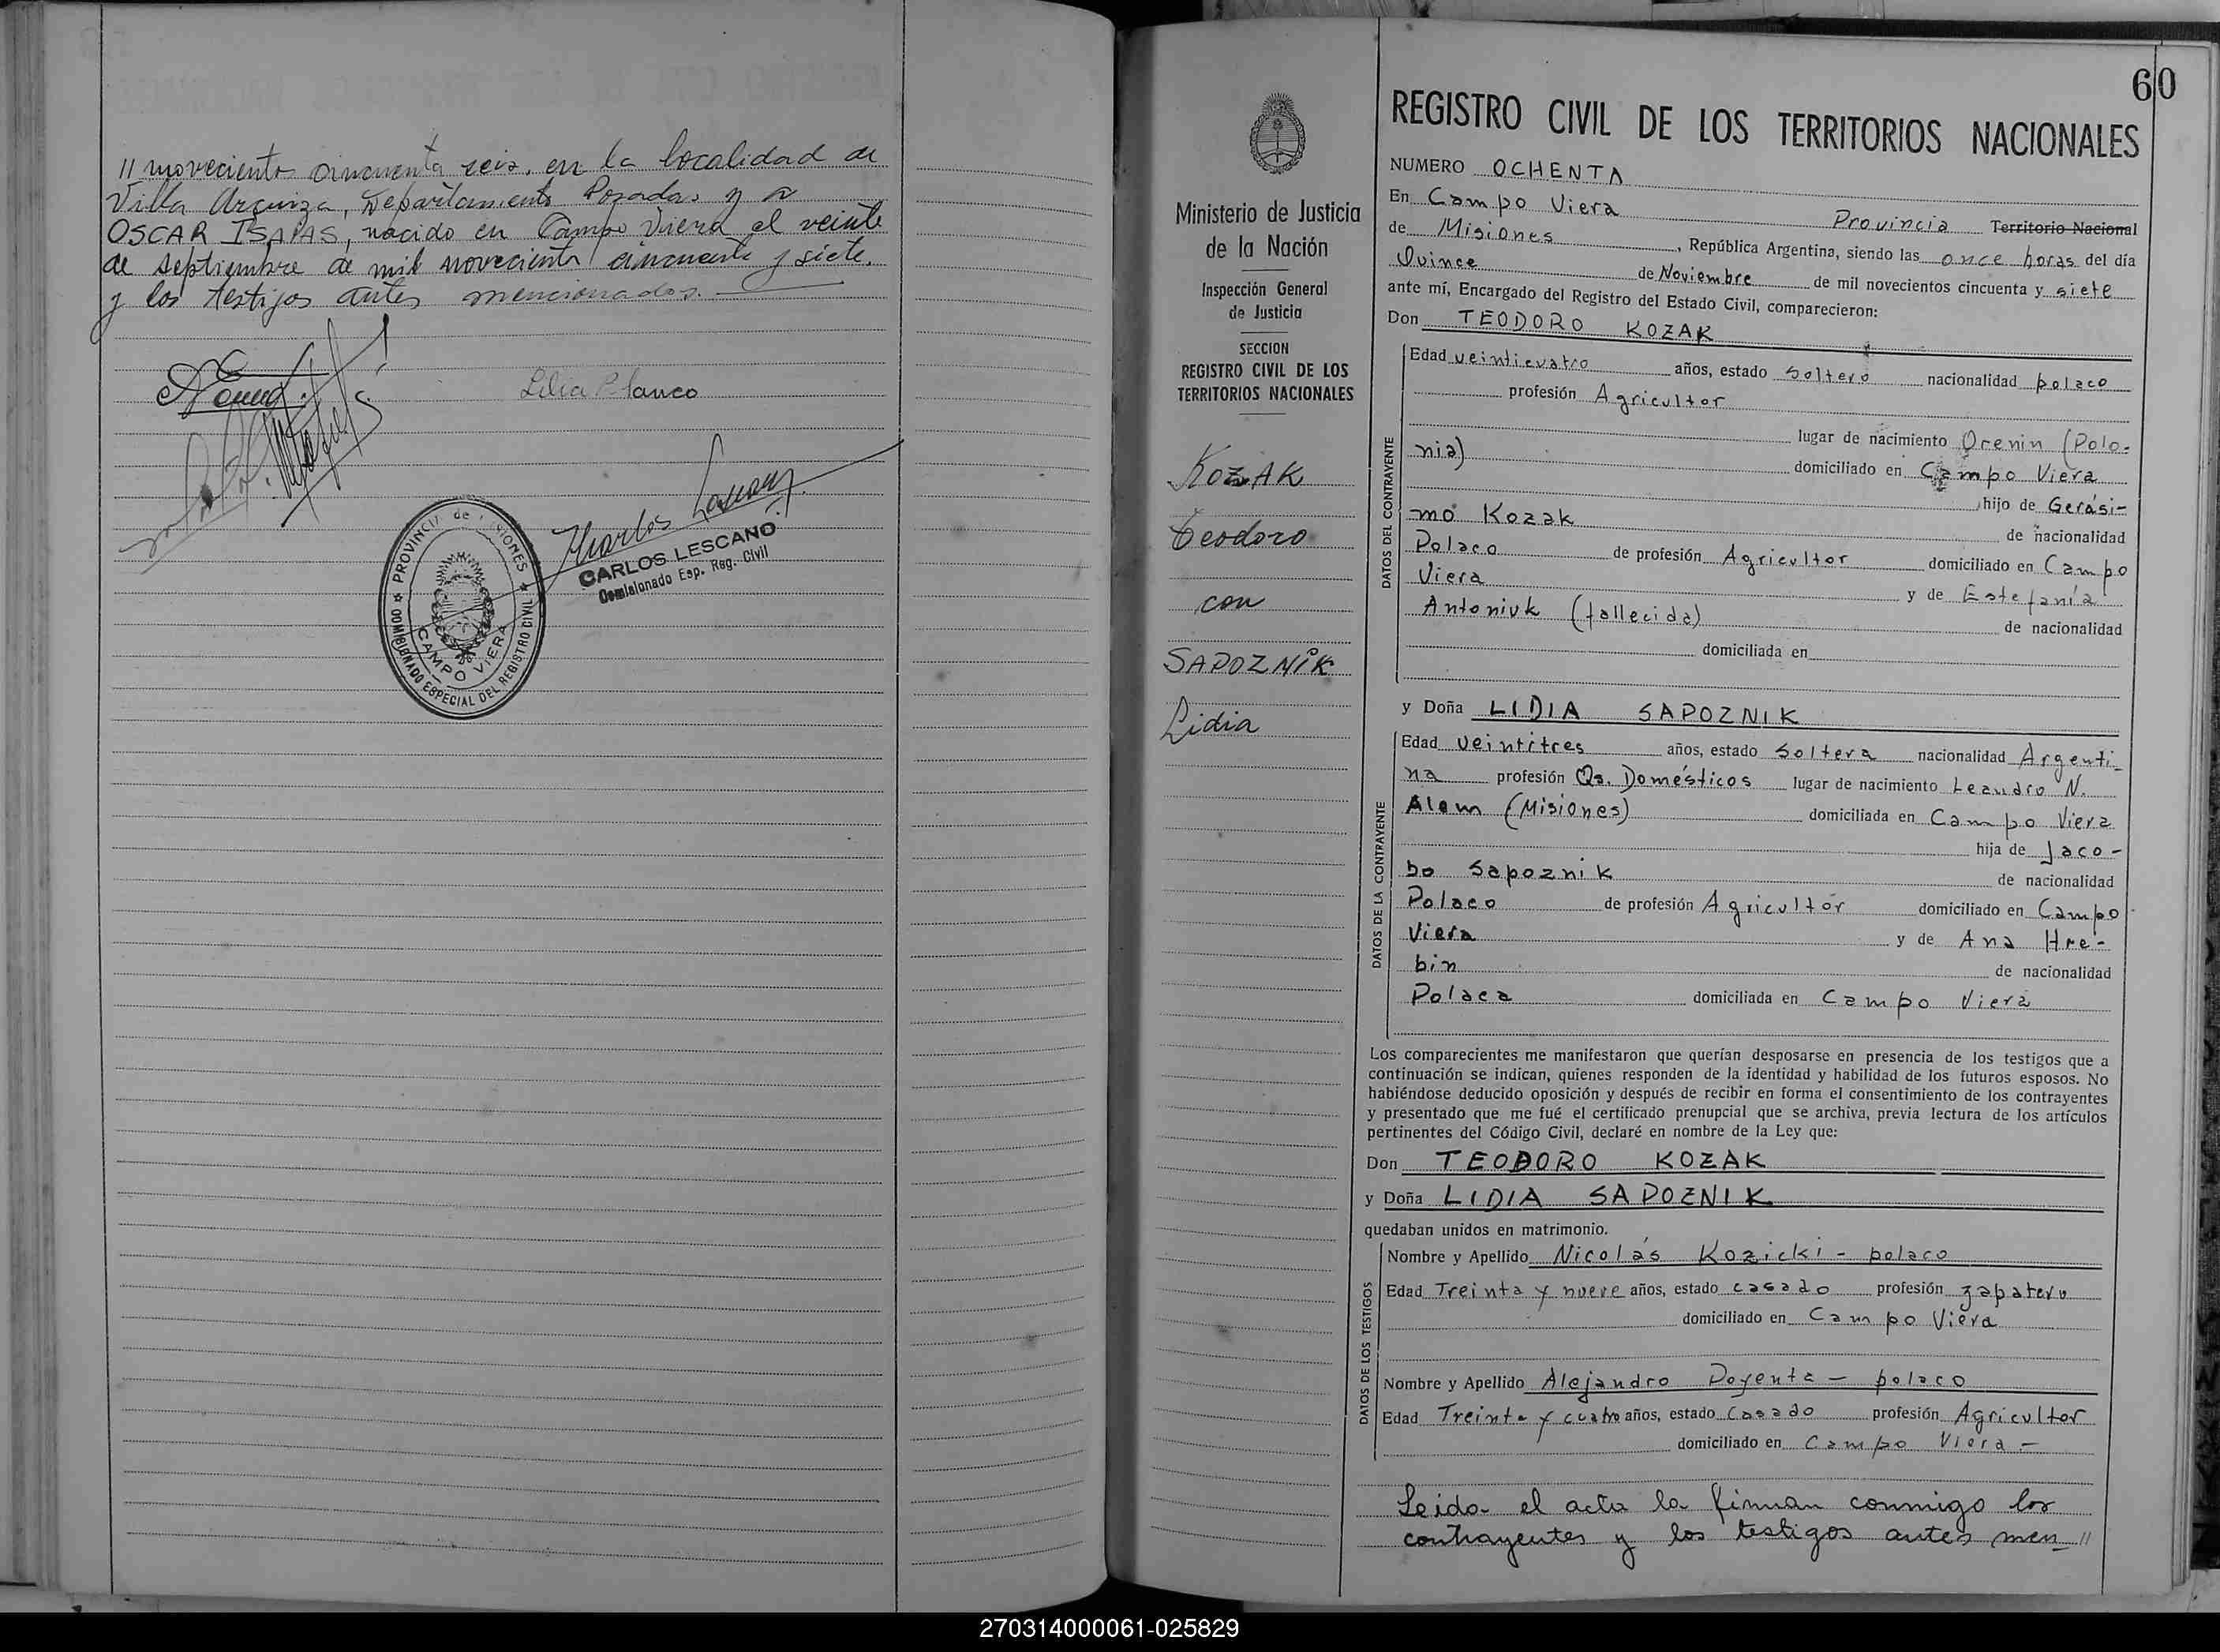 // novecientos cincuenta seis, en la localidad de
Villa Urquiza, Departamento Posadas y a
OSCAR ISAIAS, nacido en Campo Viera el veinte
de septiembre de mil novecientos cincuenta y siete.
y los testigos antes mencionados.
Lilia Blanco
Carlos Lescano
CARLOS LESCANO
Comisionado Esp. Reg. Civil
PROVINCIA de MISIONES
COMISIONADO ESPECIAL DEL REGISTRO CIVIL
CAMPO VIERA
60
Ministerio de Justicia
de la Nación
Inspección General
de Justicia
SECCION
REGISTRO CIVIL DE LOS
TERRITORIOS NACIONALES
KOZAK
Teodoro
con
SAPOZNIK
Lidia
REGISTRO CIVIL DE LOS TERRITORIOS NACIONALES
NUMERO OCHENTA
En Campo Viera Provincia Territorio Nacional
de Misiones, República Argentina, siendo las once horas del día
Quince de Noviembre de mil novecientos cincuenta y siete
ante mí, Encargado del Registro del Estado Civil, comparecieron:
Don TEODORO KOZAK
DATOS DEL CONTRAYENTE
Edad veinticuatro años, estado soltero nacionalidad polaco
profesión Agricultor
lugar de nacimiento Orenin (Polo-
nia) domiciliado en Campo Viera
hijo de Gerási-
mo Kozak de nacionalidad
Polaco de profesión Agricultor domiciliado en Campo
Viera y de Estefanía
Antoniuk (fallecida) de nacionalidad
domiciliada en
y Doña LIDIA SAPOZNIK
DATOS DE LA CONTRAYENTE
Edad veintitres años, estado soltera nacionalidad Argenti-
na profesión Qs. Domésticos lugar de nacimiento Leandro N.
Alem (Misiones) domiciliada en Campo Viera
hija de Jaco-
bo Sapoznik de nacionalidad
Polaco de profesión Agricultor domiciliado en Campo
Viera y de Ana Hre-
bin de nacionalidad
Polaca domiciliada en Campo Viera
Los comparecientes me manifestaron que querían desposarse en presencia de los testigos que a
continuación se indican, quienes responden de la identidad y habilidad de los futuros esposos. No
habiéndose deducido oposición y después de recibir en forma el consentimiento de los contrayentes
y presentado que me fué el certificado prenupcial que se archiva, previa lectura de los artículos
pertinentes del Código Civil, declaré en nombre de la Ley que:
Don TEODORO KOZAK
y Doña LIDIA SAPOZNIK
quedaban unidos en matrimonio.
DATOS DE LOS TESTIGOS
Nombre y Apellido Nicolás Kozicki - polaco
Edad Treinta y nueve años, estado casado profesión zapatero
domiciliado en Campo Viera
Nombre y Apellido Alejandro Doyenta - polaco
Edad Treinta y cuatro años, estado Casado profesión Agricultor
domiciliado en Campo Viera -
Leida el acta la firman conmigo los
contrayentes y los testigos antes men //
270314000061-025829